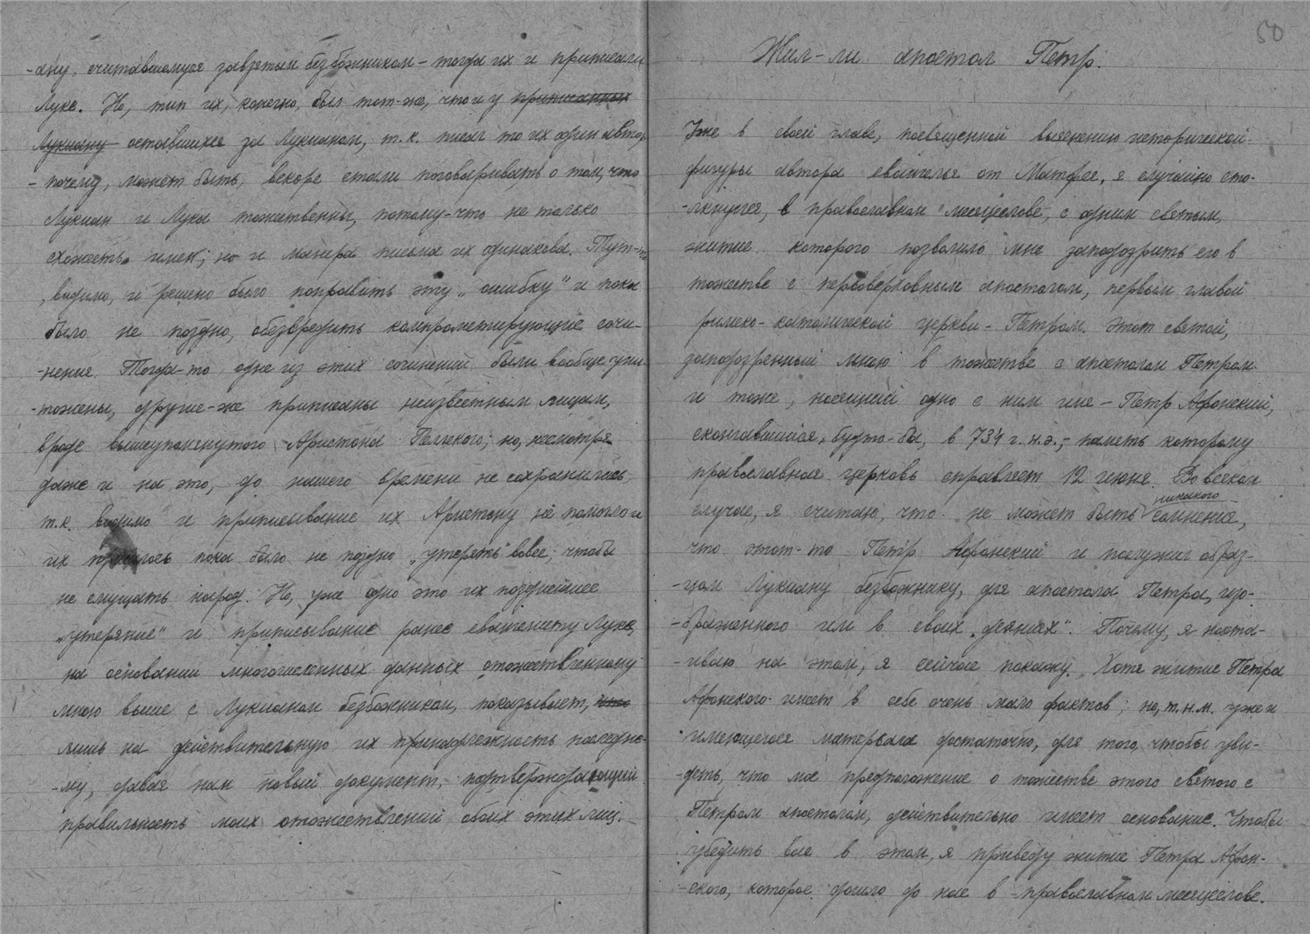 -ану, считавшемуся завзятым безбожником – тогда их и приписали
Луке. Но, тип их, конечно, был тот-же, что и у приписанных
Лукиану оставшихся за Лукианом, т.к. писал то их один автор
- почему, может быть, вскоре стали поговаривать о том, что
Лукиан и Лука тожественны, потому-что не только
схожесть имен; но и манера письма их одинакова. Тут-то
, видимо, и решено было поправить эту „ошибку" и пока
было не поздно, обезвредить компрометирующие сочи-
-нения. Тогда-то одне из этих сочинений были вообще уни-
-тожены, другие-же приписаны неизвестным лицам,
вроде вышеупомянутого Аристона Пельского; но, несмотря
даже и на это, до нашего времени не сохранились,
т.к. видимо и приписывание их Аристону не помогло и
их пришлось пока было не поздно „утерять" вовсе, чтобы
не смущать народ. Но, уже одно это их позднейшее
„утеряние" и приписывание ранее евангелисту Луке,
на основании многочисленных данных отожествленному
мною выше с Лукианом безбожником, показывает, что
лишь на действительную их принадлежность последне-
-му, давая нам новый документ, подтверждающий
правильность моих отожествлений обоих этих лиц.
50
Жил-ли апостол Петр.
Уже в своей главе, посвященной выяснению исторической
фигуры автора евангелья от Матфея, я случайно сто-
-лкнулся, в православном месяцеслове, с одним святым,
житие которого позволило мне заподозрить его в
тожестве с первоверховным апостолом, первым главой
римско-католической церкви – Петром. Этот святой,
заподозренный мною в тожестве с апостолом Петром
и тоже, носящий одно с ним имя – Петр Афонский,
скончавшийся, будто-бы, в 734 г. н.э.,- память которому
православная церковь справляет 12 июня. Во всяком
случае, я считаю, что не может быть никакого сомнения,
что этот-то Петр Афонский и послужил образ-
-цом Лукиану безбожнику, для апостола Петра, изо-
-браженного им в своих „деяниях". Почему, я наста-
-иваю на этом, я сейчас покажу. Хотя житие Петра
Афонского имеет в себе очень мало фактов; но, т.н.м. уже и
имеющегося материала достаточно, для того, чтобы уви-
-деть, что мое предположение о тожестве этого святого с
Петром апостолом, действительно имеет основание. Чтобы
убедить вас в этом, я приведу житие Петра Афон-
-ского, которое дошло до нас в православном месяцеслове.